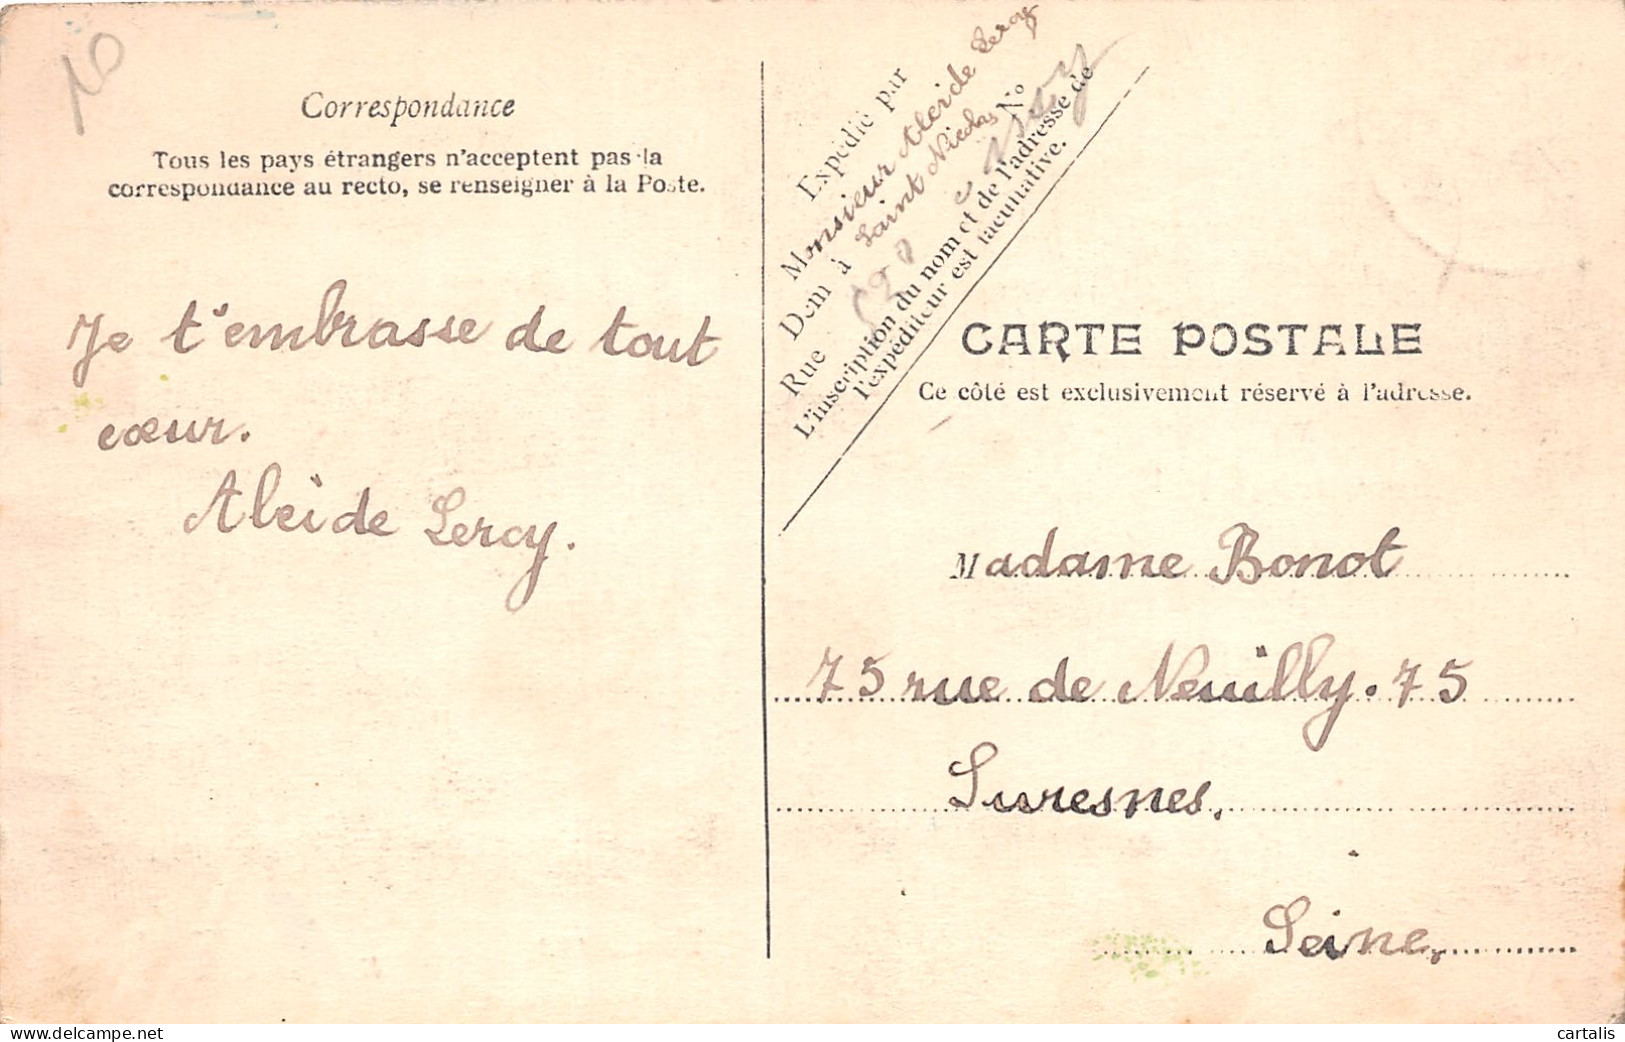 10
Correspondance
Tous les pays étrangers n'acceptent pas la
correspondance au recto, se renseigner à la Poste.
Je t'embrasse de tout
cœur.
Alcide Leroy.
Expédié par
Monsieur Alcide Leroy
Dem à Saint Nicolas N°
Rue
L'inscription du nom et de l'adresse de
l'expéditeur est facultative.
CARTE POSTALE
Ce côté est exclusivement réservé à l'adresse.
Madame Bonot
75 rue de Neuilly. 75
Suresnes.
Seine
delcampe.net
cartalis